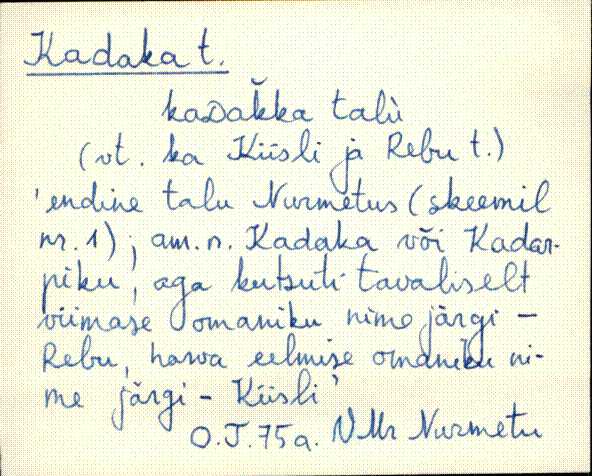 Kadaka t.
kaDak̆ka talù
(vt. ka Kiisli ja Rebu t.)
'endine talu Nurmetus (skeemil
nr. 1); am. n. Kadaka või Kadar-
piku, aga kutsuti tavaliselt
viimase omaniku nime järgi –
Rebu, harva eelmise omaniku ni-
me järgi – Kiisli'
O.J. 75a. VMr Nurmetu